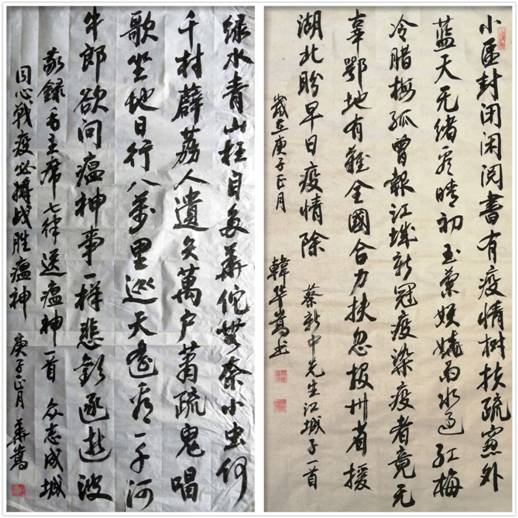 绿水青山枉自多華佗無奈小虫何
千村薜荔人遗矢萬户萧疏鬼唱
歌坐地日行八萬里巡天遥看一千河
牛郎欲问瘟神事一样悲歡逐逝波
敬録毛主席七律送瘟神一首 众志成城
同心战疫必将战胜瘟神 庚子正月 華嵩
小區封闭闲阅書有疫情树扶疏窗外
藍天无绪看晴初玉蘭妖娆雨水过红梅
冷腊梅孤曾報江城新冠疫染疫者竟无
辜鄂地有難全國合力扶忽报卅省援
湖北盼早日疫情除 蔡新中先生江城子一首
歲在庚子正月 韓華嵩书